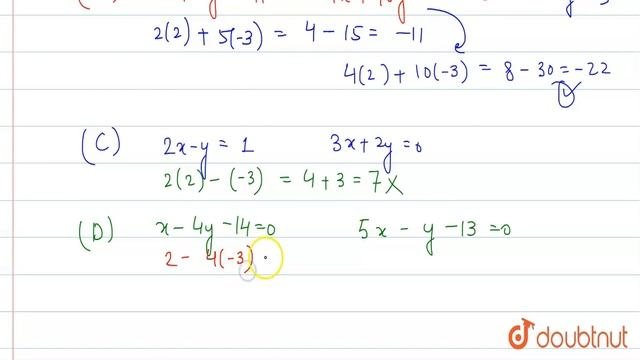 2(2) + 5(-3) = 4 - 15 = -11
4(2) + 10(-3) = 8 - 30 = -22
(C) 2x - y = 1 3x + 2y = 0
2(2) - (-3) = 4 + 3 = 7 X
(D) x - 4y - 14 = 0 5x - y - 13 = 0
2 - 4(-3)
doubtnut